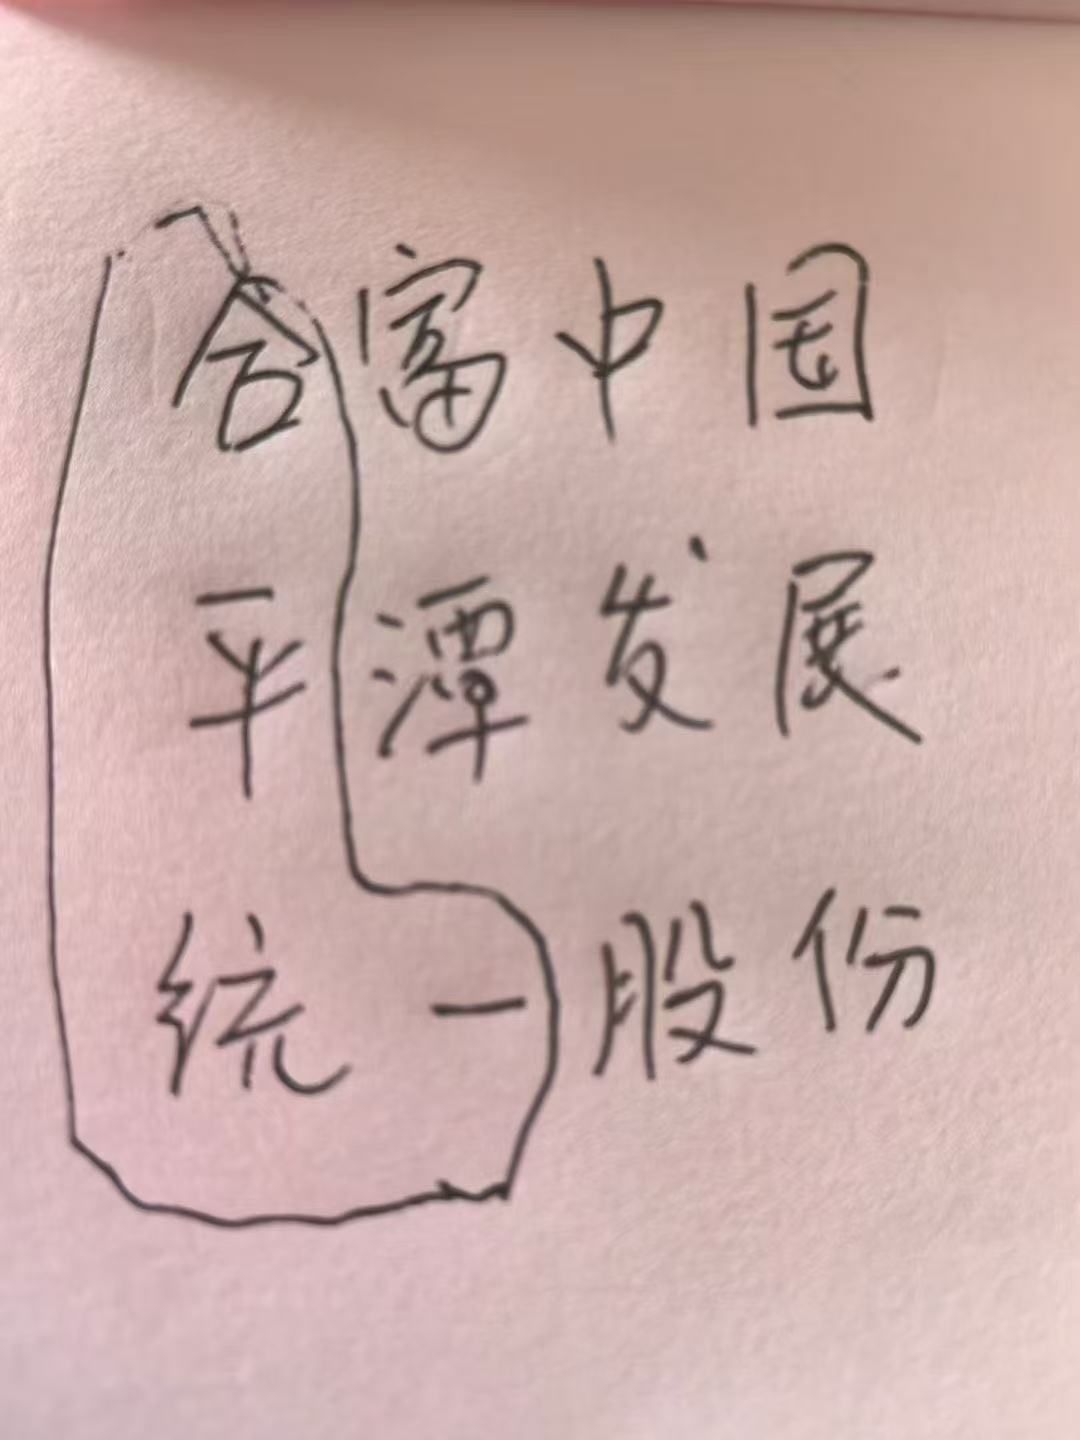 合富中国
平潭发展
统一股份